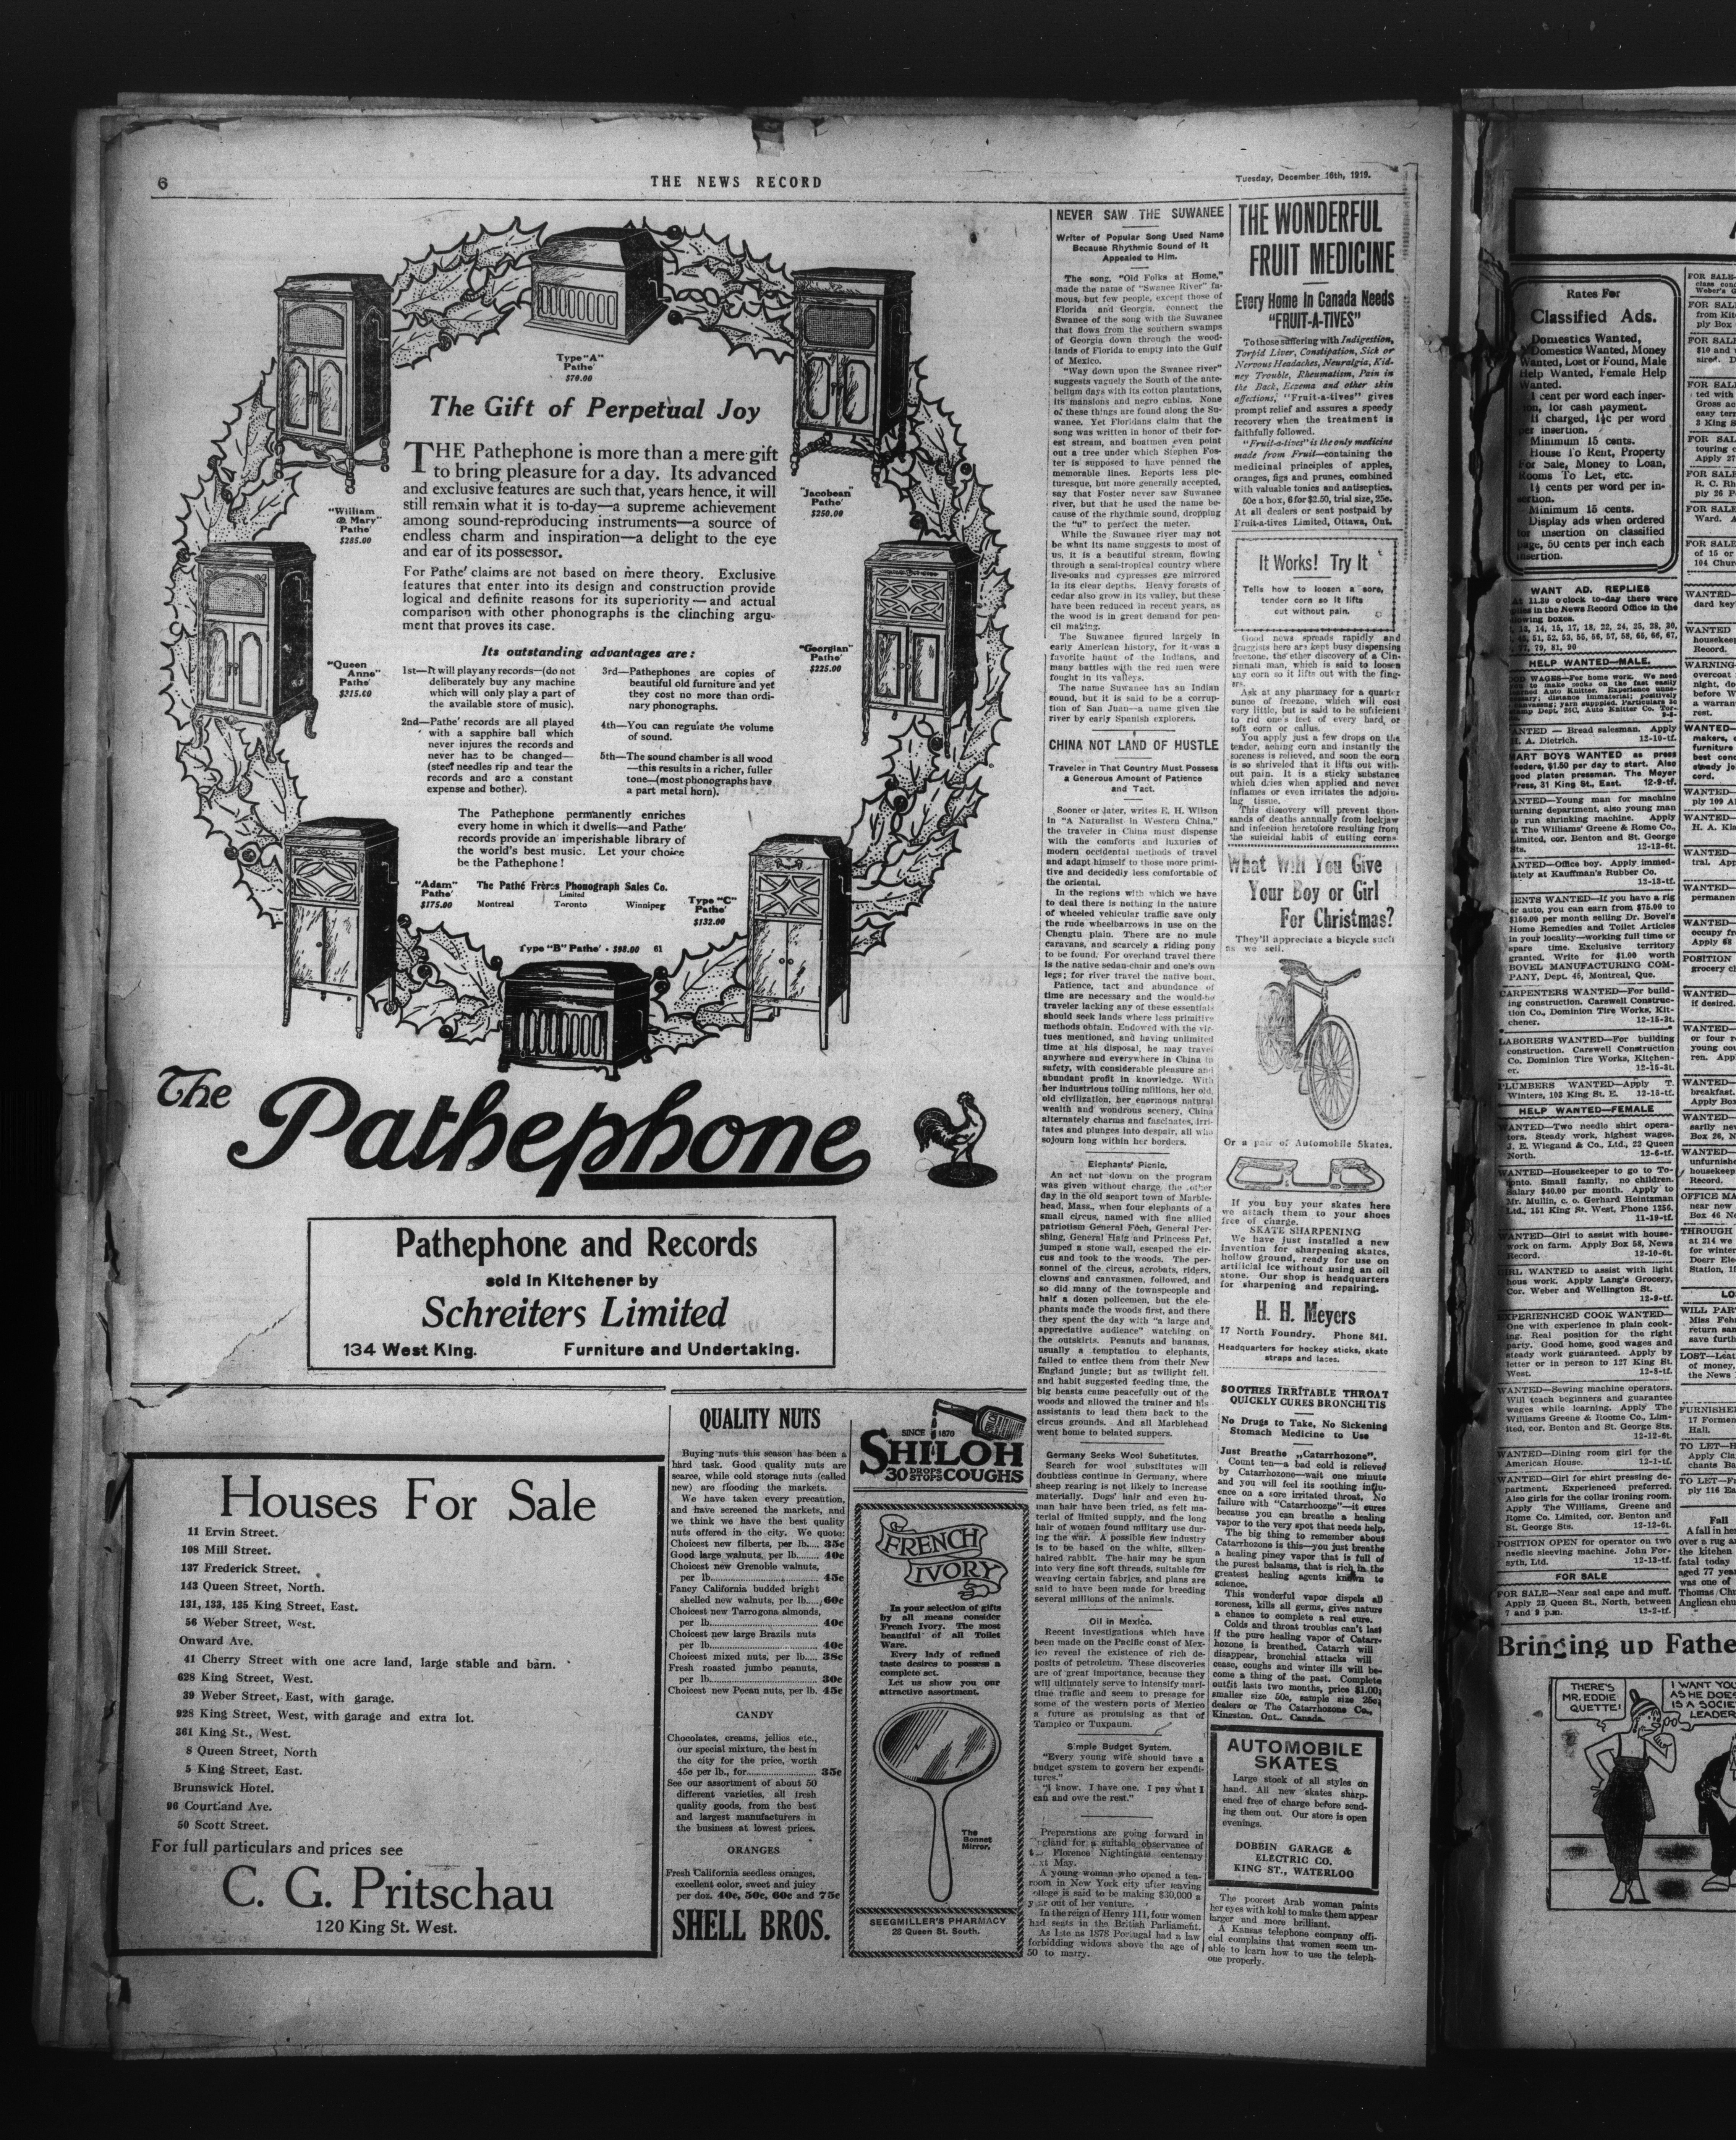 6
THE NEWS RECORD
Tuesday, December 16th, 1919.
Type "A"
Pathe'
$70.00
"William
& Mary"
Pathe'
$285.00
"Jacobean"
Pathe'
$250.00
"Queen
Anne"
Pathe'
$315.00
"Georgian"
Pathe'
$225.00
The Gift of Perpetual Joy
THE Pathephone is more than a mere gift
to bring pleasure for a day. Its advanced
and exclusive features are such that, years hence, it will
still remain what it is to-day—a supreme achievement
among sound-reproducing instruments—a source of
endless charm and inspiration—a delight to the eye
and ear of its possessor.
For Pathe' claims are not based on mere theory. Exclusive
features that enter into its design and construction provide
logical and definite reasons for its superiority—and actual
comparison with other phonographs is the clinching argu-
ment that proves its case.
Its outstanding advantages are:
1st—It will play any records—(do not
deliberately buy any machine
which will only play a part of
the available store of music).
2nd—Pathe' records are all played
with a sapphire ball which
never injures the records and
never has to be changed—
(steel needles rip and tear the
records and are a constant
expense and bother).
3rd—Pathephones are copies of
beautiful old furniture and yet
they cost no more than ordi-
nary phonographs.
4th—You can regulate the volume
of sound.
5th—The sound chamber is all wood
—this results in a richer, fuller
tone—(most phonographs have
a part metal horn).
The Pathephone permanently enriches
every home in which it dwells—and Pathe'
records provide an imperishable library of
the world's best music. Let your choice
be the Pathephone!
"Adam"
Pathe'
$175.00
The Pathé Frères Phonograph Sales Co.
Limited
Montreal Toronto Winnipeg
Type "C"
Pathe'
$132.00
Type "B" Pathe' - $98.00 61
The
Pathephone
Pathephone and Records
sold in Kitchener by
Schreiters Limited
134 West King. Furniture and Undertaking.
Houses For Sale
11 Ervin Street.
108 Mill Street.
137 Frederick Street.
143 Queen Street, North.
131, 133, 135 King Street, East.
56 Weber Street, West.
Onward Ave.
41 Cherry Street with one acre land, large stable and barn.
628 King Street, West.
39 Weber Street, East, with garage.
928 King Street, West, with garage and extra lot.
361 King St., West.
8 Queen Street, North
5 King Street, East.
Brunswick Hotel.
96 Courtland Ave.
50 Scott Street.
For full particulars and prices see
C. G. Pritschau
120 King St. West.
QUALITY NUTS
Buying nuts this season has been a
hard task. Good quality nuts are
scarce, while cold storage nuts (called
new) are flooding the markets.
We have taken every precaution,
and have screened the markets, and
we think we have the best quality
nuts offered in the city. We quote:
Choicest new filberts, per lb.... 35c
Good large walnuts, per lb....... 40c
Choicest new Grenoble walnuts,
per lb............................ 45c
Fancy California budded bright
shelled new walnuts, per lb...., 60c
Choicest new Tarrogona almonds,
per lb............................ 40c
Choicest new large Brazils nuts
per lb............................ 40c
Choicest mixed nuts, per lb..... 38c
Fresh roasted jumbo peanuts,
per lb............................ 30c
Choicest new Pecan nuts, per lb. 45c
CANDY
Chocolates, creams, jellies etc.,
our special mixture, the best in
the city for the price, worth
45c per lb., for.................. 35c
See our assortment of about 50
different varieties, all fresh
quality goods, from the best
and largest manufacturers in
the business at lowest prices.
ORANGES
Fresh California seedless oranges,
excellent color, sweet and juicy
per doz. 40c, 50c, 60c and 75c
SHELL BROS.
SINCE 1870
SHILOH
30 DROPS STOPS COUGHS
FRENCH
IVORY
In your selection of gifts
by all means consider
French Ivory. The most
beautiful of all Toilet
Ware.
Every lady of refined
taste desires to possess a
complete set.
Let us show you our
attractive assortment.
The
Bonnet
Mirror.
SEEGMILLER'S PHARMACY
28 Queen St. South.
NEVER SAW THE SUWANEE
Writer of Popular Song Used Name
Because Rhythmic Sound of It
Appealed to Him.
The song, "Old Folks at Home,"
made the name of "Swanee River" fa-
mous, but few people, except those of
Florida and Georgia, connect the
Swanee of the song with the Suwanee
that flows from the southern swamps
of Georgia down through the wood-
lands of Florida to empty into the Gulf
of Mexico.
"Way down upon the Swanee river"
suggests vaguely the South of the ante-
bellum days with its cotton plantations,
its mansions and negro cabins. None
of these things are found along the Su-
wanee. Yet Floridans claim that the
song was written in honor of their for-
est stream, and boatmen even point
out a tree under which Stephen Fos-
ter is supposed to have penned the
memorable lines. Reports less pic-
turesque, but more generally accepted,
say that Foster never saw Suwanee
river, but that he used the name be-
cause of the rhythmic sound, dropping
the "u" to perfect the meter.
While the Suwanee river may not
be what its name suggests to most of
us, it is a beautiful stream, flowing
through a semi-tropical country where
live-oaks and cypresses are mirrored
in its clear depths. Heavy forests of
cedar also grow in its valley, but these
have been reduced in recent years, as
the wood is in great demand for pen-
cil making.
The Suwanee figured largely in
early American history, for it was a
favorite haunt of the Indians, and
many battles with the red men were
fought in its valleys.
The name Suwanee has an Indian
sound, but it is said to be a corrup-
tion of San Juan—a name given the
river by early Spanish explorers.
CHINA NOT LAND OF HUSTLE
Traveler in That Country Must Possess
a Generous Amount of Patience
and Tact.
Sooner or later, writes E. H. Wilson
in "A Naturalist in Western China,"
the traveler in China must dispense
with the comforts and luxuries of
modern occidental methods of travel
and adapt himself to those more primi-
tive and decidedly less comfortable of
the oriental.
In the regions with which we have
to deal there is nothing in the nature
of wheeled vehicular traffic save only
the rude wheelbarrows in use on the
Chengtu plain. There are no mule
caravans, and scarcely a riding pony
to be found. For overland travel there
is the native sedan-chair and one's own
legs; for river travel the native boat.
Patience, tact and abundance of
time are necessary and the would-be
traveler lacking any of these essentials
should seek lands where less primitive
methods obtain. Endowed with the vir-
tues mentioned, and having unlimited
time at his disposal, he may travel
anywhere and everywhere in China in
safety, with considerable pleasure and
abundant profit in knowledge. With
her industrious toiling millions, her old,
old civilization, her enormous natural
wealth and wondrous scenery, China
alternately charms and fascinates, irri-
tates and plunges into despair, all who
sojourn long within her borders.
Elephants' Picnic.
An act not down on the program
was given without charge the other
day in the old seaport town of Marble-
head, Mass., when four elephants of a
small circus, named with fine allied
patriotism General Foch, General Per-
shing, General Haig and Princess Pat,
jumped a stone wall, escaped the cir-
cus and took to the woods. The per-
sonnel of the circus, acrobats, riders,
clowns and canvasmen, followed, and
so did many of the townspeople and
half a dozen policemen, but the ele-
phants made the woods first, and there
they spent the day with "a large and
appreciative audience" watching on
the outskirts. Peanuts and bananas,
usually a temptation to elephants,
failed to entice them from their New
England jungle; but as twilight fell,
and habit suggested feeding time, the
big beasts came peacefully out of the
woods and allowed the trainer and his
assistants to lead them back to the
circus grounds. And all Marblehead
went home to belated suppers.
Germany Seeks Wool Substitutes.
Search for wool substitutes will
doubtless continue in Germany, where
sheep rearing is not likely to increase
materially. Dogs' hair and even hu-
man hair have been tried, as felt ma-
terial of limited supply, and the long
hair of women found military use dur-
ing the war. A possible new industry
is to be based on the white, silken-
haired rabbit. The hair may be spun
into very fine soft threads, suitable for
weaving certain fabrics, and plans are
said to have been made for breeding
several millions of the animals.
Oil in Mexico.
Recent investigations which have
been made on the Pacific coast of Mex-
ico reveal the existence of rich de-
posits of petroleum. These discoveries
are of great importance, because they
will ultimately serve to intensify mari-
time traffic and seem to presage for
some of the western ports of Mexico
a future as promising as that of
Tampico or Tuxpaum.
Simple Budget System.
"Every young wife should have a
budget system to govern her expendi-
tures."
"I know. I have one. I pay what I
can and owe the rest."
Preparations are going forward in
England for a suitable observance of
Florence Nightingale centenary
May.
A young woman who opened a tea-
room in New York city after leaving
college is said to be making $30,000 a
year out of her venture.
In the reign of Henry 111, four women
had seats in the British Parliament.
As late as 1878 Portugal had a law
forbidding widows above the age of
50 to marry.
THE WONDERFUL
FRUIT MEDICINE
Every Home In Canada Needs
"FRUIT-A-TIVES"
To those suffering with Indigestion,
Torpid Liver, Constipation, Sick or
Nervous Headaches, Neuralgia, Kid-
ney Trouble, Rheumatism, Pain in
the Back, Eczema and other skin
affections, "Fruit-a-tives" gives
prompt relief and assures a speedy
recovery when the treatment is
faithfully followed.
"Fruit-a-tives" is the only medicine
made from Fruit—containing the
medicinal principles of apples,
oranges, figs and prunes, combined
with valuable tonics and antiseptics.
50c a box, 6 for $2.50, trial size, 25c.
At all dealers or sent postpaid by
Fruit-a-tives Limited, Ottawa, Ont.
It Works! Try It
Tells how to loosen a sore,
tender corn so it lifts
out without pain.
Good news spreads rapidly and
druggists here are kept busy dispensing
freezone, the ether discovery of a Cin-
cinnati man, which is said to loosen
any corn so it lifts out with the fing-
ers.
Ask at any pharmacy for a quarter
ounce of freezone, which will cost
very little, but is said to be sufficient
to rid one's feet of every hard, or
soft corn or callus.
You apply just a few drops on the
tender, aching corn and instantly the
soreness is relieved, and soon the corn
is so shriveled that it lifts out with-
out pain. It is a sticky substance
which dries when applied and never
inflames or even irritates the adjoin-
ing tissue.
This discovery will prevent thou-
sands of deaths annually from lockjaw
and infection heretofore resulting from
the suicidal habit of cutting corns.
What Will You Give
Your Boy or Girl
For Christmas?
They'll appreciate a bicycle such
as we sell.
Or a pair of Automobile Skates.
If you buy your skates here
we attach them to your shoes
free of charge.
SKATE SHARPENING
We have just installed a new
invention for sharpening skates,
hollow ground, ready for use on
artificial ice without using an oil
stone. Our shop is headquarters
for sharpening and repairing.
H. H. Meyers
17 North Foundry. Phone 841.
Headquarters for hockey sticks, skate
straps and laces.
SOOTHES IRRITABLE THROAT
QUICKLY CURES BRONCHITIS
No Drugs to Take, No Sickening
Stomach Medicine to Use
Just Breathe „Catarrhozone".
Count ten—a bad cold is relieved
by Catarrhozone—wait one minute
and you will feel its soothing influ-
ence on a sore irritated throat. No
failure with "Catarrhoozne"—it cures
because you can breathe a healing
vapor to the very spot that needs help.
The big thing to remember about
Catarrhozone is this—you just breathe
a healing piney vapor that is full of
the purest balsams, that is rich in the
greatest healing agents known to
science.
This wonderful vapor dispels all
soreness, kills all germs, gives nature
a chance to complete a real cure.
Colds and throat troubles can't last
if the pure healing vapor of Catarr-
hozone is breathed. Catarrh will
disappear, bronchial attacks will
cease, coughs and winter ills will be-
come a thing of the past. Complete
outfit lasts two months, price $1.00;
smaller size 50c, sample size 25c;
dealers or The Catarrhozone Co.,
Kingston, Ont., Canada.
AUTOMOBILE
SKATES
Large stock of all styles on
hand. All new skates sharp-
ened free of charge before send-
ing them out. Our store is open
evenings.
DOBBIN GARAGE &
ELECTRIC CO.
KING ST., WATERLOO
The poorest Arab woman paints
her eyes with kohl to make them appear
larger and more brilliant.
A Kansas telephone company offi-
cial complains that women seem un-
able to learn how to use the teleph-
one properly.
Rates For
Classified Ads.
Domestics Wanted,
Domestics Wanted, Money
Wanted, Lost or Found, Male
Help Wanted, Female Help
Wanted.
1 cent per word each inser-
tion, for cash payment.
If charged, 1½c per word
per insertion.
Minimum 15 cents.
House To Rent, Property
For Sale, Money to Loan,
Rooms To Let, etc.
1½ cents per word per in-
sertion.
Minimum 15 cents.
Display ads when ordered
for insertion on classified
page, 50 cents per inch each
insertion.
WANT AD. REPLIES
At 11.30 o'clock to-day there were
replies in the News Record Office in the
following boxes.
13, 14, 15, 17, 18, 22, 24, 25, 28, 30,
51, 52, 53, 55, 56, 57, 58, 65, 66, 67,
79, 81, 90
HELP WANTED—MALE.
WANTED — Bread salesman. Apply
H. A. Dietrich. 12-10-tf.
SMART BOYS WANTED as press
feeders, $1.50 per day to start. Also
good platen pressman. The Meyer
Press, 31 King St., East. 12-9-tf.
WANTED—Young man for machine
turning department, also young man
to run shrinking machine. Apply
at The Williams' Greene & Rome Co.,
Limited, cor. Benton and St. George
Sts. 12-12-6t.
WANTED—Office boy. Apply immed-
iately at Kauffman's Rubber Co.
12-13-tf.
AGENTS WANTED—If you have a rig
or auto, you can earn from $75.00 to
$150.00 per month selling Dr. Bovel's
Home Remedies and Toilet Articles
in your locality—working full time or
spare time. Exclusive territory
granted. Write for $1.00 worth
BOVEL MANUFACTURING COM-
PANY, Dept. 45, Montreal, Que.
CARPENTERS WANTED—For build-
ing construction. Carswell Construc-
tion Co., Dominion Tire Works, Kit-
chener. 12-15-3t.
LABORERS WANTED—For building
construction. Carswell Construction
Co. Dominion Tire Works, Kitchen-
er. 12-15-3t.
PLUMBERS WANTED—Apply T.
Winters, 103 King St. E. 12-15-tf.
HELP WANTED—FEMALE
WANTED—Two needle shirt opera-
tors. Steady work, highest wages.
J. E. Wiegand & Co., Ltd., 22 Queen
North. 12-6-tf.
WANTED—Housekeeper to go to To-
ronto. Small family, no children.
Salary $40.00 per month. Apply to
Mr. Mullin, c. o. Gerhard Heintzman
Ltd., 151 King St. West, Phone 1256.
11-19-tf.
WANTED—Girl to assist with house-
work on farm. Apply Box 58, News
Record. 12-10-6t.
GIRL WANTED to assist with light
hous work. Apply Lang's Grocery,
Cor. Weber and Wellington St.
12-9-tf.
EXPERIENHCED COOK WANTED—
One with experience in plain cook-
ing. Real position for the right
party. Good home, good wages and
steady work guaranteed. Apply by
letter or in person to 127 King St.
West. 12-8-tf.
WANTED—Sewing machine operators.
Will teach beginners and guarantee
wages while learning. Apply The
Williams Greene & Roome Co., Lim-
ited, cor. Benton and St. George Sts.
12-12-6t.
WANTED—Dining room girl for the
American House. 12-1-tf.
WANTED—Girl for shirt pressing de-
partment. Experienced preferred.
Also girls for the collar ironing room.
Apply The Williams, Greene and
Rome Co. Limited, cor. Benton and
St. George Sts. 12-12-6t.
POSITION OPEN for operator on two
needle sleeving machine. John For-
syth, Ltd. 12-13-tf.
FOR SALE
FOR SALE—Near seal cape and muff.
Apply 23 Queen St., North, between
7 and 9 p.m. 12-2-tf.
Bringing up Fathe
THERE'S
MR. EDDIE
QUETTE!
I WANT YOU
AS HE DOES
IS A SOCIE
LEADER